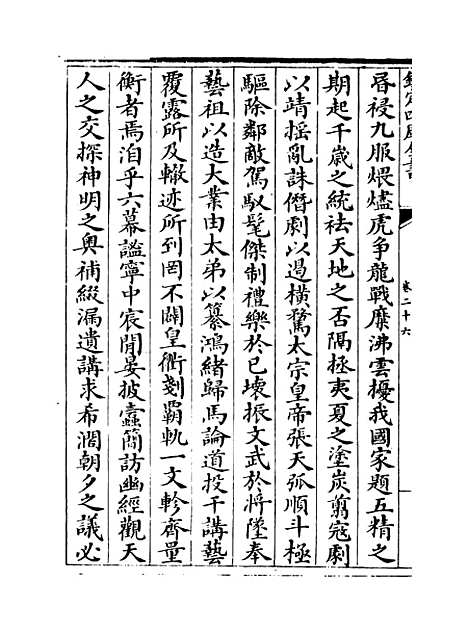 欽定四庫全書
卷二十六
昬祲九服煨爐虎争龍戰糜沸雲擾我國家題五精之
期起千歳之統袪天地之否隔拯夷夏之塗炭翦冦劇
以靖揺亂誅僭劇以遏横騖太宗皇帝張天弧順斗極
驅除鄰敵駕馭髦傑制禮樂於已壊振文武於將墜奉
藝祖以造大業由太弟以纂鴻緒歸馬論道投干講藝
覆露所及轍迹所到罔不闢皇衢剗覇軌一文軫齊量
衡者焉洎乎六幕謐寧中宸閒晏披蠧簡訪幽經觀天
人之交探神明之奥補綴漏遺講求希濶朝夕之議必